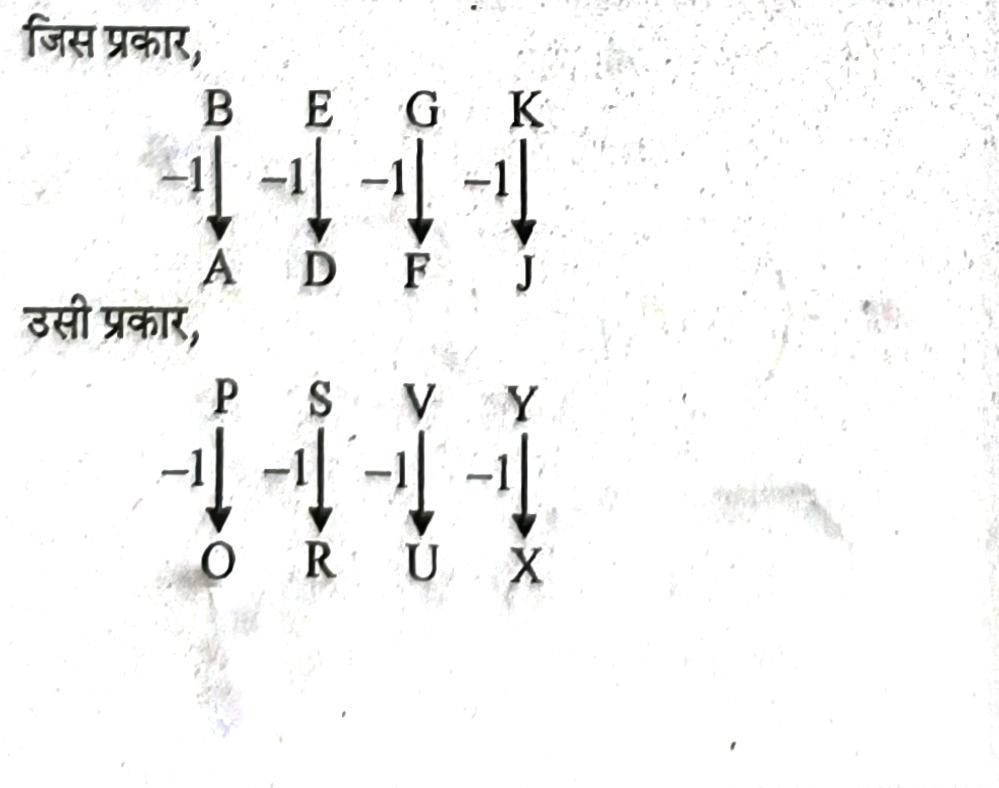 जिस प्रकार,
B E G K
–1 –1 –1 –1
A D F J
उसी प्रकार,
P S V Y
–1 –1 –1 –1
O R U X